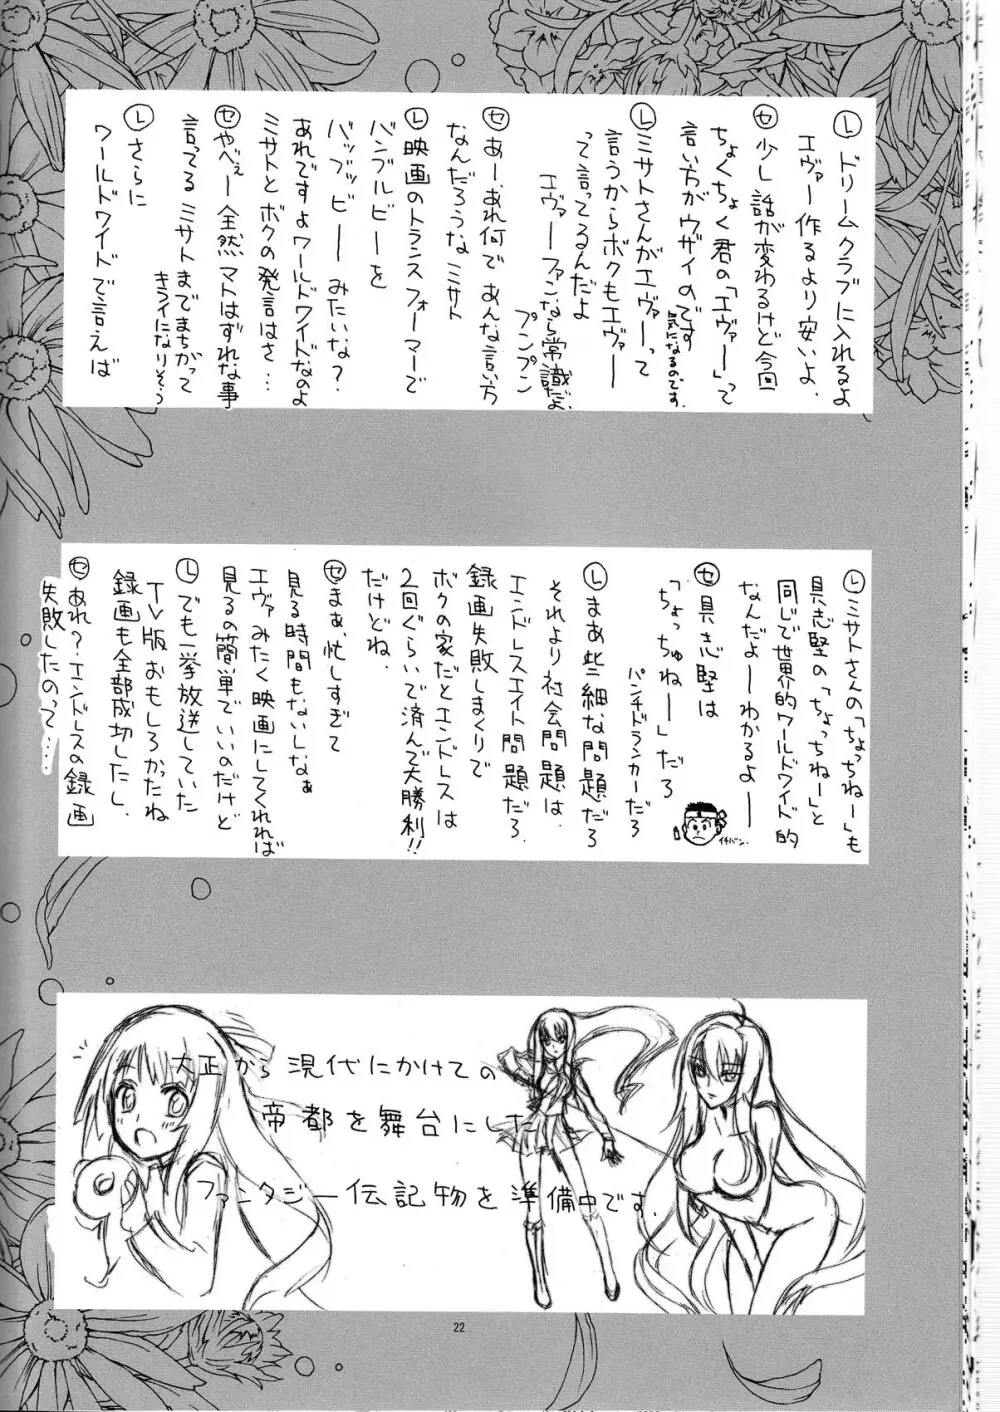 Ⓛドリームクラブに入れるよ
エヴァー作るより安いよ.
㋝少し話が変わるけど今回
ちょくちょく君の「エヴァー」って
言い方がウザイのです
気になるのです.
Ⓛミサトさんがエヴァーって
言うからボクもエヴァー
って言ってるんだよ
エヴァーファンなら常識だよ.
プンプン
㋝あー､あれ何であんな言い方
なんだろうな ミサト
Ⓛ映画のトランスフォーマーで
バンブルビーを
バッブッビー みたいな?
あれですよワールドワイドなのよ
ミサトとボクの発言はさ…
㋝やべぇー全然マトはずれな事
言ってる ミサトまでまちがって
キライになりそう
Ⓛさらに
ワールドワイドで言えば
Ⓛミサトさんの「ちょっちねー」も
具志堅の「ちょっちねー」と
同じで世界的ワールドワイド的
なんだよーわかるよー
㋝具志堅は
「ちょっちゅねー」だろ
パンチドランカーだろ
イチバン.
Ⓛまあ些細な問題だろ
それより社会問題は､
エンドレスエイト問題だろ､
録画失敗しまくりで
ボクの家だとエンドレスは
2回ぐらいで済んで大勝利!!
だけどね､
㋝まぁ､忙しすぎて
見る時間もないしなぁ
エヴァみたく映画にしてくれれば
見るの簡単でいいのだけど
Ⓛでも一挙放送していた
TV版おもしろかったね
録画も全部成功したし､
㋝あれ?エンドレスの録画
失敗したのって….
大正から現代にかけての
帝都を舞台にした
ファンタジー伝記物を準備中です.
22